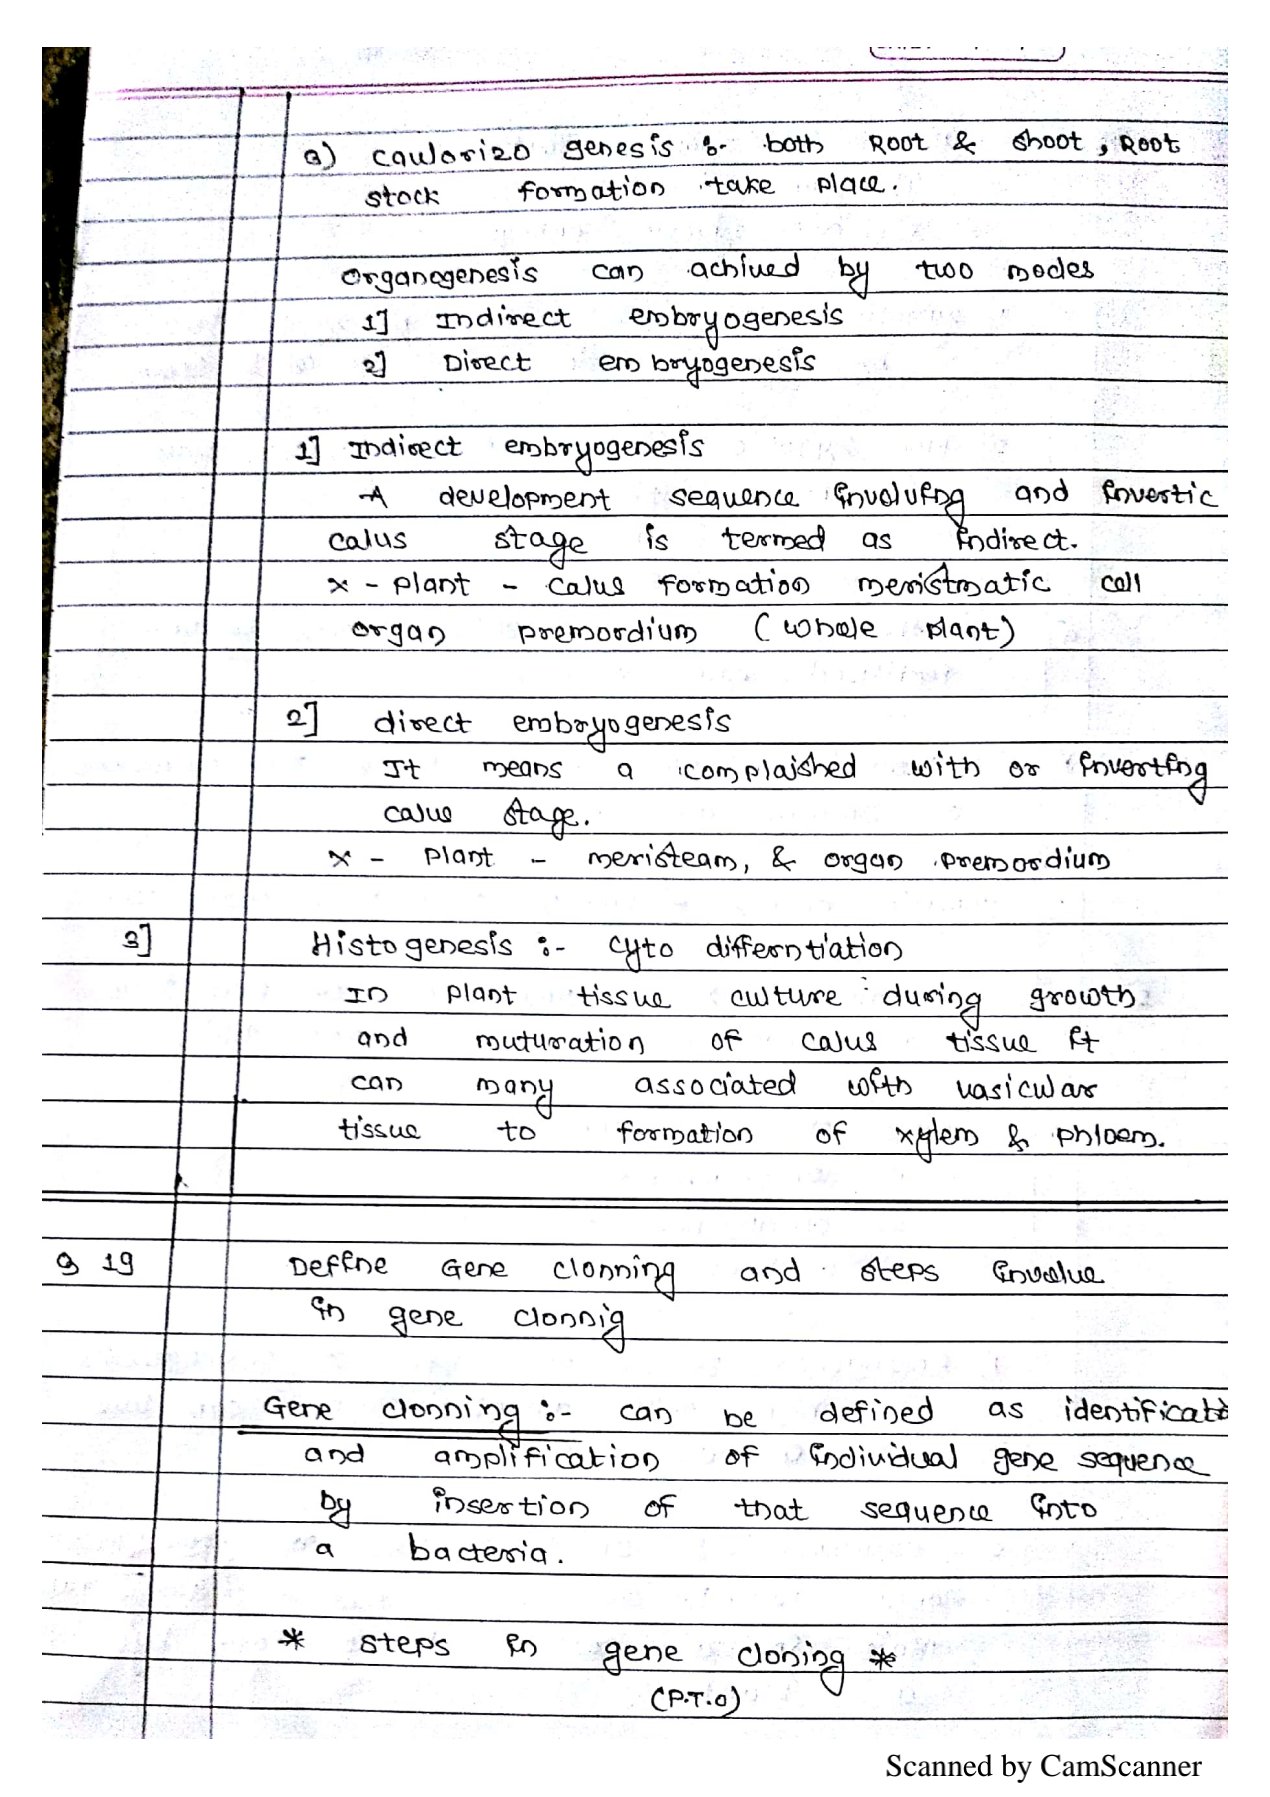 a) caulorizo genesis :- both Root & shoot, Root
stock formation take place.
organogenesis can achived by two modes
1] Indirect embryogenesis
2] Direct embryogenesis
1] Indirect embryogenesis
A development sequence involving and invertic
calus stage is termed as indirect.
x - plant - calus formation meristmatic cell
organ premordium (whole plant)
2] direct embryogenesis
It means a complaished with or inverting
calus stage.
x - plant - meristeam, & organ premordium
3] Histogenesis :- Cyto differntiation
In plant tissue culture during growth
and muturation of calus tissue it
can many associated with vasicular
tissue to formation of xylem & phloem.
Q 19 Define Gene clonning and steps invalue
in gene clonnig
Gene clonning :- can be defined as identificatio
and amplification of individual gene sequence
by insertion of that sequence into
a bacteria.
* steps in gene cloning *
(P.T.O)
Scanned by CamScanner